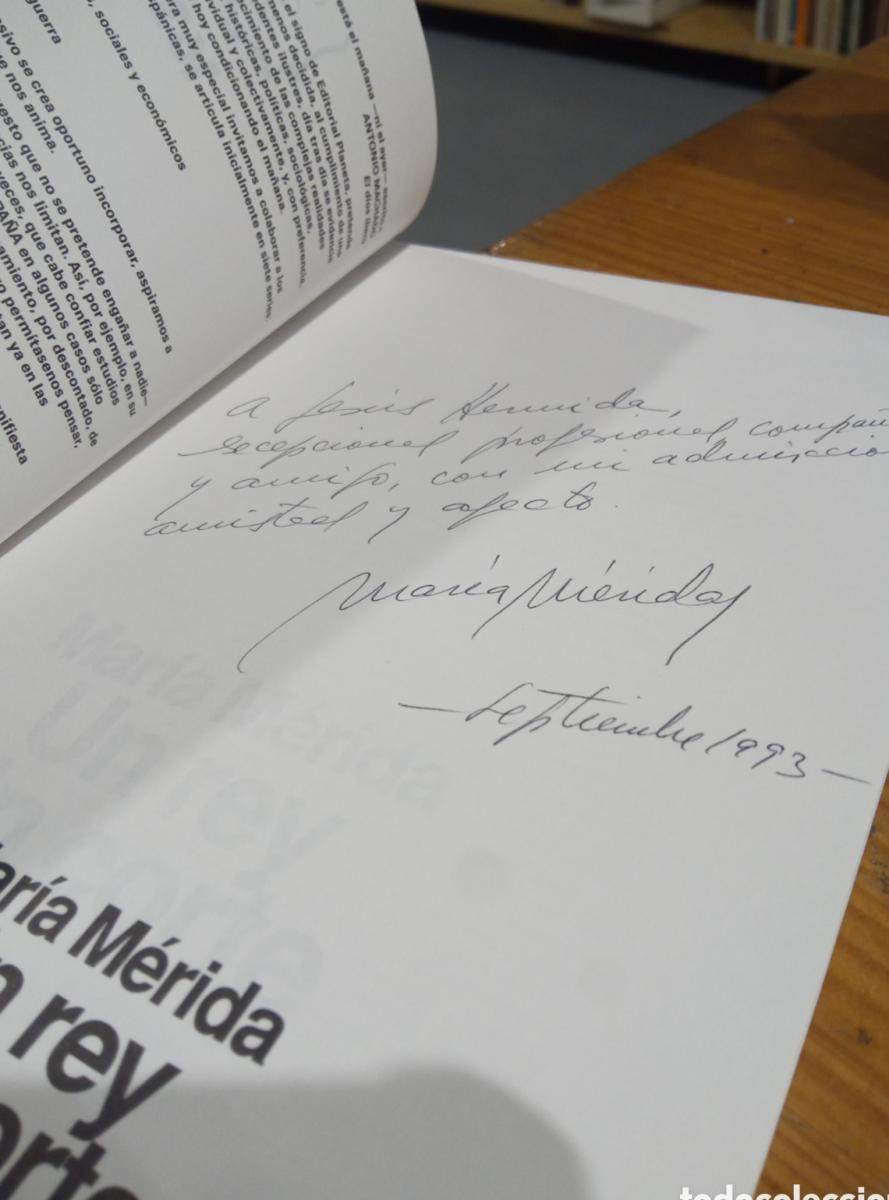 guerra
, sociales y económicos
sivo se crea oportuno incorporar, aspiramos a
e nos anima.
uesto que no se pretende engañar a nadie—
cias nos limitan. Así, por ejemplo, en su
veces, que cabe confiar estudios
PAÑA en algunos casos sólo
amiento, por descontado, de
o permítasenos pensar,
tan ya en las
nifiesta
está el mañana —ni el ayer— escrito.»
ANTONIO MACHADO
El dios ibero
el signo de Editorial Planeta, pretende
menos decidida, al cumplimiento de una
dentes ilustres, día tras día se evidencia
cimiento de las complejas realidades
históricas, políticas, sociológicas,
ividual y colectivamente, y, con preferencia,
hoy condicionando el mañana.
era muy especial invitamos a colaborar a los
spánicas, se articula inicialmente en siete series
A Jesús Hermida,
excepcional profesional compañ
y amigo, con mi admiració
amistad y afecto.
María Mérida
—Septiembre 1993—
María Mérida
Un rey
sin corte
aría Mérida
n rey
orte
todocoleccion